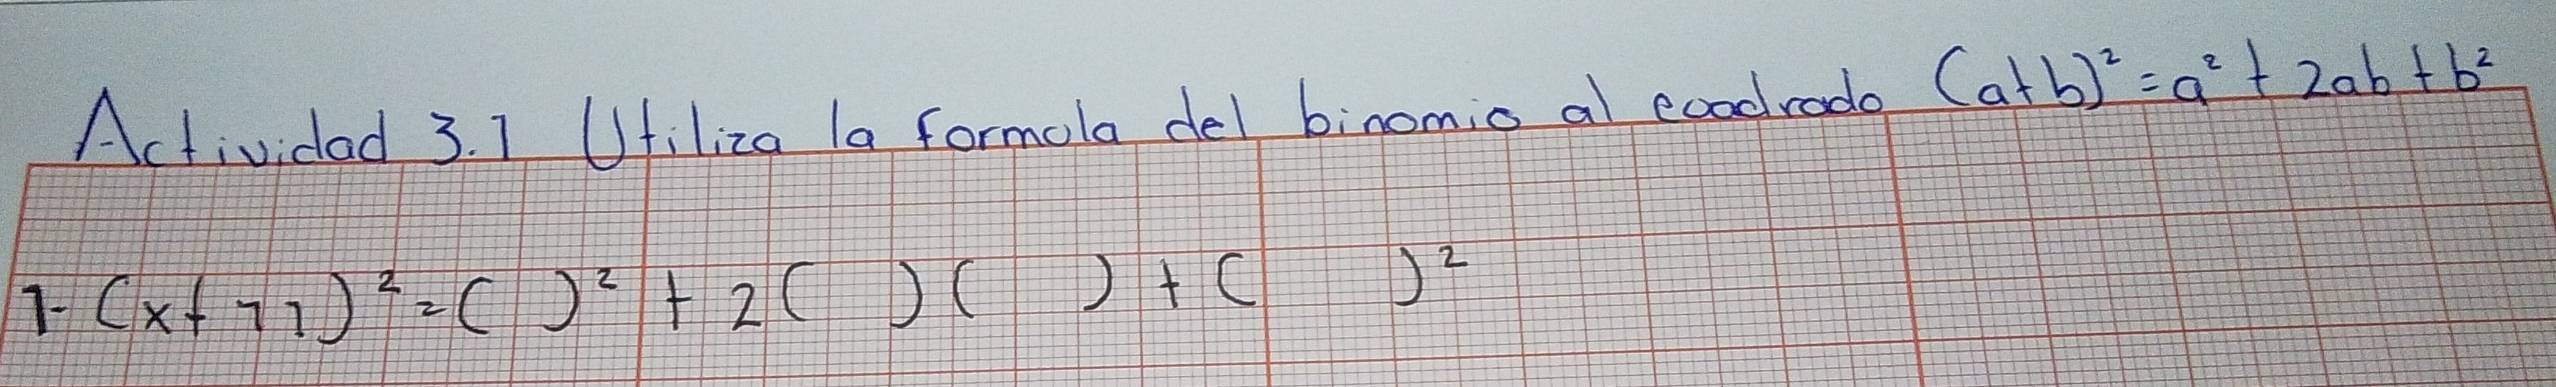 Actividad 3.1 Utiliza la formola del binomio al coadrado (a+b)² = a² + 2ab + b²
1- (x+11)² = ( )² + 2( )( ) + ( )²